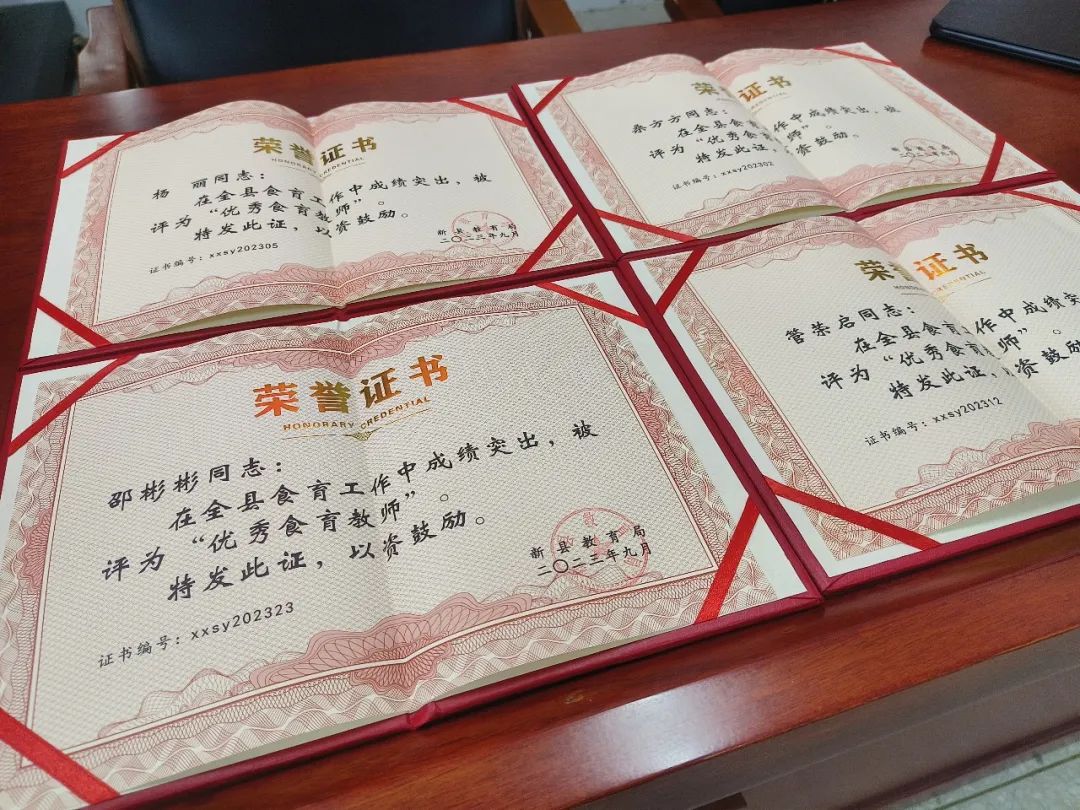 荣誉证书
HONORARY CREDENTIAL
杨 丽同志：
在全县食育工作中成绩突出，被
评为“优秀食育教师”。
特发此证，以资鼓励。
新县教育局
二〇二三年九月
证书编号：xxsy202305
荣誉证书
桑方方同志：
在全县食育工作中成绩突出，被
评为“优秀食育教师”。
特发此证，以资鼓励。
二〇二三年九月
证书编号：xxsy202302
荣誉证书
HONORARY CREDENTIAL
邵彬彬同志：
在全县食育工作中成绩突出，被
评为“优秀食育教师”。
特发此证，以资鼓励。
新县教育局
二〇二三年九月
证书编号：xxsy202323
荣誉证书
管荣启同志：
在全县食育工作中成绩突
评为“优秀食育教师”。
特发此证，以资鼓励
证书编号：xxsy202312